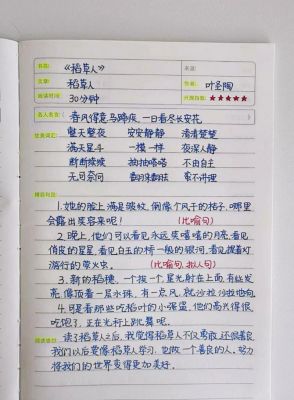 书名： 《稻草人》 来源：
文章： 稻草人 作者： 叶圣陶
阅读时间： 30分钟 开卷指数：★★★★★
名人名言： 春风得意马蹄疾，一日看尽长安花
优美词汇： 整天整夜 安安静静 清清楚楚
满天星斗 一模一样 夜深人静
断断续续 抽抽噎噎 不由自主
无可奈何 蛮不讲理
精彩句段：
1. 她的脸上满是皱纹，倒像个风干的桔子，哪里
会露出笑容来呢！ （比喻句）
2. 晚上，他们可以看见永远笑嘻嘻的月亮，看见
俏皮的星星，看见白玉的桥一般的银河，看见提着灯
游行的萤火虫。 （比喻句，拟人句）
3. 新的稻穗，一个挨一个，星光射在上面，有些发
亮，像顶着一层水珠，有一点风，就沙拉沙拉地响。
4. 可是看那些吃稻叶的小强盗，他们高兴得很，
吃饱了，正在光秆上跳舞呢。
阅读感悟： 读了稻草人之后，我觉得稻草人不仅勇敢，还很善良
我们以后要像稻草人学习，也做一个善良的人，努力
将我们的世界变得更加美好。